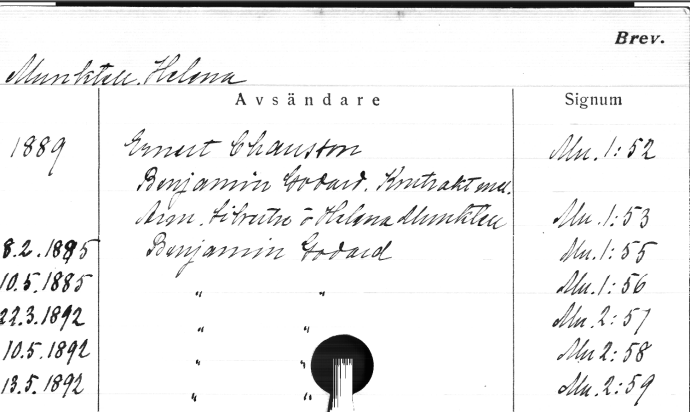 Brev.
Munktell, Helena
Avsändare Signum
1889 Ernest Chausson Mu. 1:52
Benjamin Godard. Kontrakt mel.
Arm. Silvestre o Helena Munktell Mu. 1:53
8.2.1885 Benjamin Godard Mu. 1:55
10.5.1885 " " Mu. 1:56
22.3.1892 " " Mu. 2:57
10.5.1892 " " Mu 2:58
13.5.1892 " " Mu. 2:59